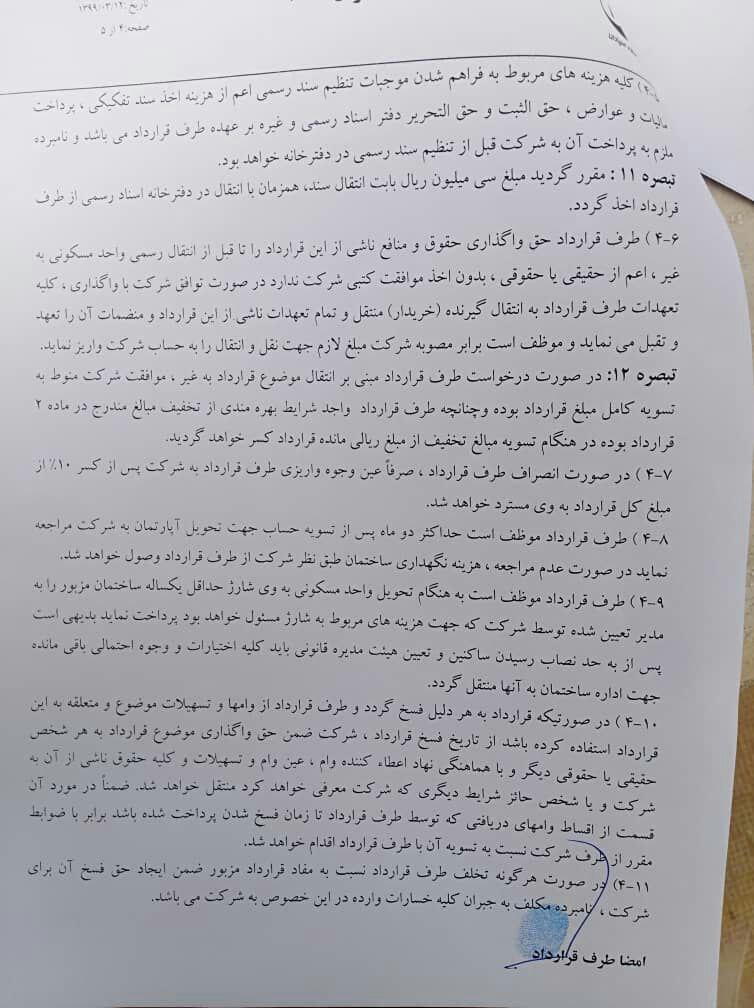 تاریخ: ۱۳۹۹/۰۳/۱۲
صفحه: ۴ از ۵
) کلیه هزینه های مربوط به فراهم شدن موجبات تنظیم سند رسمی اعم از هزینه اخذ سند تفکیکی ، پرداخت
مالیات و عوارض ، حق الثبت و حق التحریر دفتر اسناد رسمی و غیره بر عهده طرف قرارداد می باشد و نامبرده
ملزم به پرداخت آن به شرکت قبل از تنظیم سند رسمی در دفترخانه خواهد بود.
تبصره ۱۱ : مقرر گردید مبلغ سی میلیون ریال بابت انتقال سند، همزمان با انتقال در دفترخانه اسناد رسمی از طرف
قرارداد اخذ گردد.
۴-۶ ) طرف قرارداد حق واگذاری حقوق و منافع ناشی از این قرارداد را تا قبل از انتقال رسمی واحد مسکونی به
غیر ، اعم از حقیقی یا حقوقی ، بدون اخذ موافقت کتبی شرکت ندارد در صورت توافق شرکت با واگذاری ، کلیه
تعهدات طرف قرارداد به انتقال گیرنده (خریدار) منتقل و تمام تعهدات ناشی از این قرارداد و منضمات آن را تعهد
و تقبل می نماید و موظف است برابر مصوبه شرکت مبلغ لازم جهت نقل و انتقال را به حساب شرکت واریز نماید.
تبصره ۱۲: در صورت درخواست طرف قرارداد مبنی بر انتقال موضوع قرارداد به غیر ، موافقت شرکت منوط به
تسویه کامل مبلغ قرارداد بوده وچنانچه طرف قرارداد واجد شرایط بهره مندی از تخفیف مبالغ مندرج در ماده ۲
قرارداد بوده در هنگام تسویه مبالغ تخفیف از مبلغ ریالی مانده قرارداد کسر خواهد گردید.
۴-۷ ) در صورت انصراف طرف قرارداد ، صرفاً عین وجوه واریزی طرف قرارداد به شرکت پس از کسر ۱۰٪ از
مبلغ کل قرارداد به وی مسترد خواهد شد.
۴-۸ ) طرف قرارداد موظف است حداکثر دو ماه پس از تسویه حساب جهت تحویل آپارتمان به شرکت مراجعه
نماید در صورت عدم مراجعه ، هزینه نگهداری ساختمان طبق نظر شرکت از طرف قرارداد وصول خواهد شد.
۴-۹ ) طرف قرارداد موظف است به هنگام تحویل واحد مسکونی به وی شارژ حداقل یکساله ساختمان مزبور را به
مدیر تعیین شده توسط شرکت که جهت هزینه های مربوط به شارژ مسئول خواهد بود پرداخت نماید بدیهی است
پس از به حد نصاب رسیدن ساکنین و تعیین هیئت مدیره قانونی باید کلیه اختیارات و وجوه احتمالی باقی مانده
جهت اداره ساختمان به آنها منتقل گردد.
۴-۱۰ ) در صورتیکه قرارداد به هر دلیل فسخ گردد و طرف قرارداد از وامها و تسهیلات موضوع و متعلقه به این
قرارداد استفاده کرده باشد از تاریخ فسخ قرارداد ، شرکت ضمن حق واگذاری موضوع قرارداد به هر شخص
حقیقی یا حقوقی دیگر و با هماهنگی نهاد اعطاء کننده وام ، عین وام و تسهیلات و کلیه حقوق ناشی از آن به
شرکت و یا شخص حائز شرایط دیگری که شرکت معرفی خواهد کرد منتقل خواهد شد. ضمناً در مورد آن
قسمت از اقساط وامهای دریافتی که توسط طرف قرارداد تا زمان فسخ شدن پرداخت شده باشد برابر با ضوابط
مقرر از طرف شرکت نسبت به تسویه آن با طرف قرارداد اقدام خواهد شد.
۴-۱۱) در صورت هرگونه تخلف طرف قرارداد نسبت به مفاد قرارداد مزبور ضمن ایجاد حق فسخ آن برای
شرکت ، نامبرده مکلف به جبران کلیه خسارات وارده در این خصوص به شرکت می باشد.
امضا طرف قرارداد